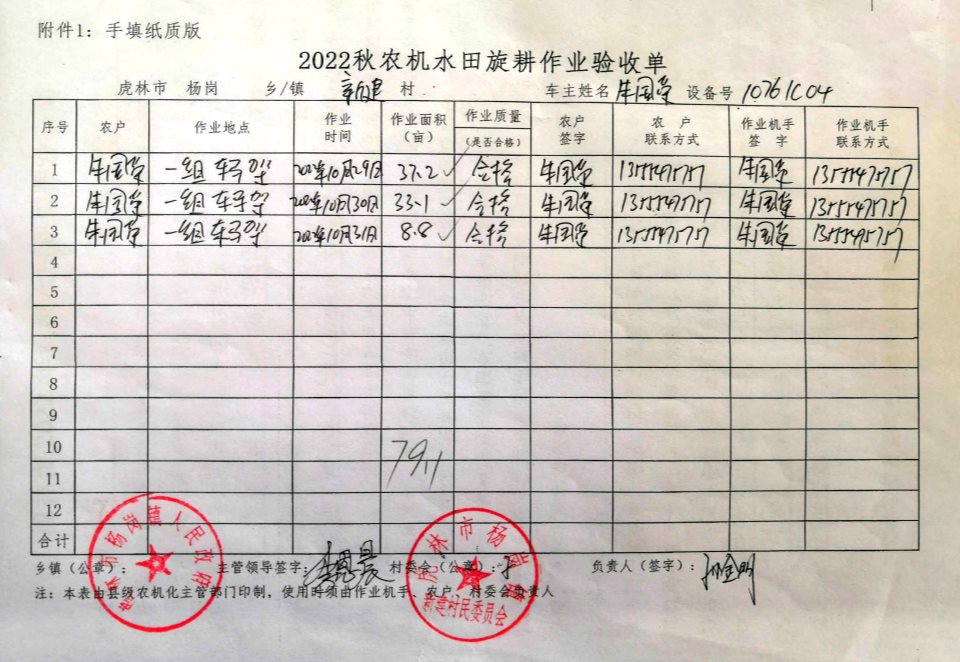 附件1：手填纸质版
2022秋农机水田旋耕作业验收单
虎林市 杨岗 乡/镇 新建 村 车主姓名 牛国荣 设备号 10761C04
序号 农户 作业地点 作业时间 作业面积（亩） 作业质量（是否合格） 农户签字 农户联系方式 作业机手签字 作业机手联系方式
1 牛国荣 一组 车子架 10月29日 37.2 合格 牛国荣 牛国荣
2 牛国荣 一组 车子架 10月30日 33.1 合格 牛国荣 牛国荣
3 牛国荣 一组 车子架 10月31日 8.8 合格 牛国荣 牛国荣
4
5
6
7
8
9
10
79.1
11
12
合计
乡镇（公章）： 主管领导签字： 村委会（公章）： 负责人（签字）： 孙金明
注：本表由县级农机化主管部门印制，使用时须由作业机手、农户、村委会负责人
虎林市杨岗镇人民政府
虎林市杨岗镇
新建村民委员会